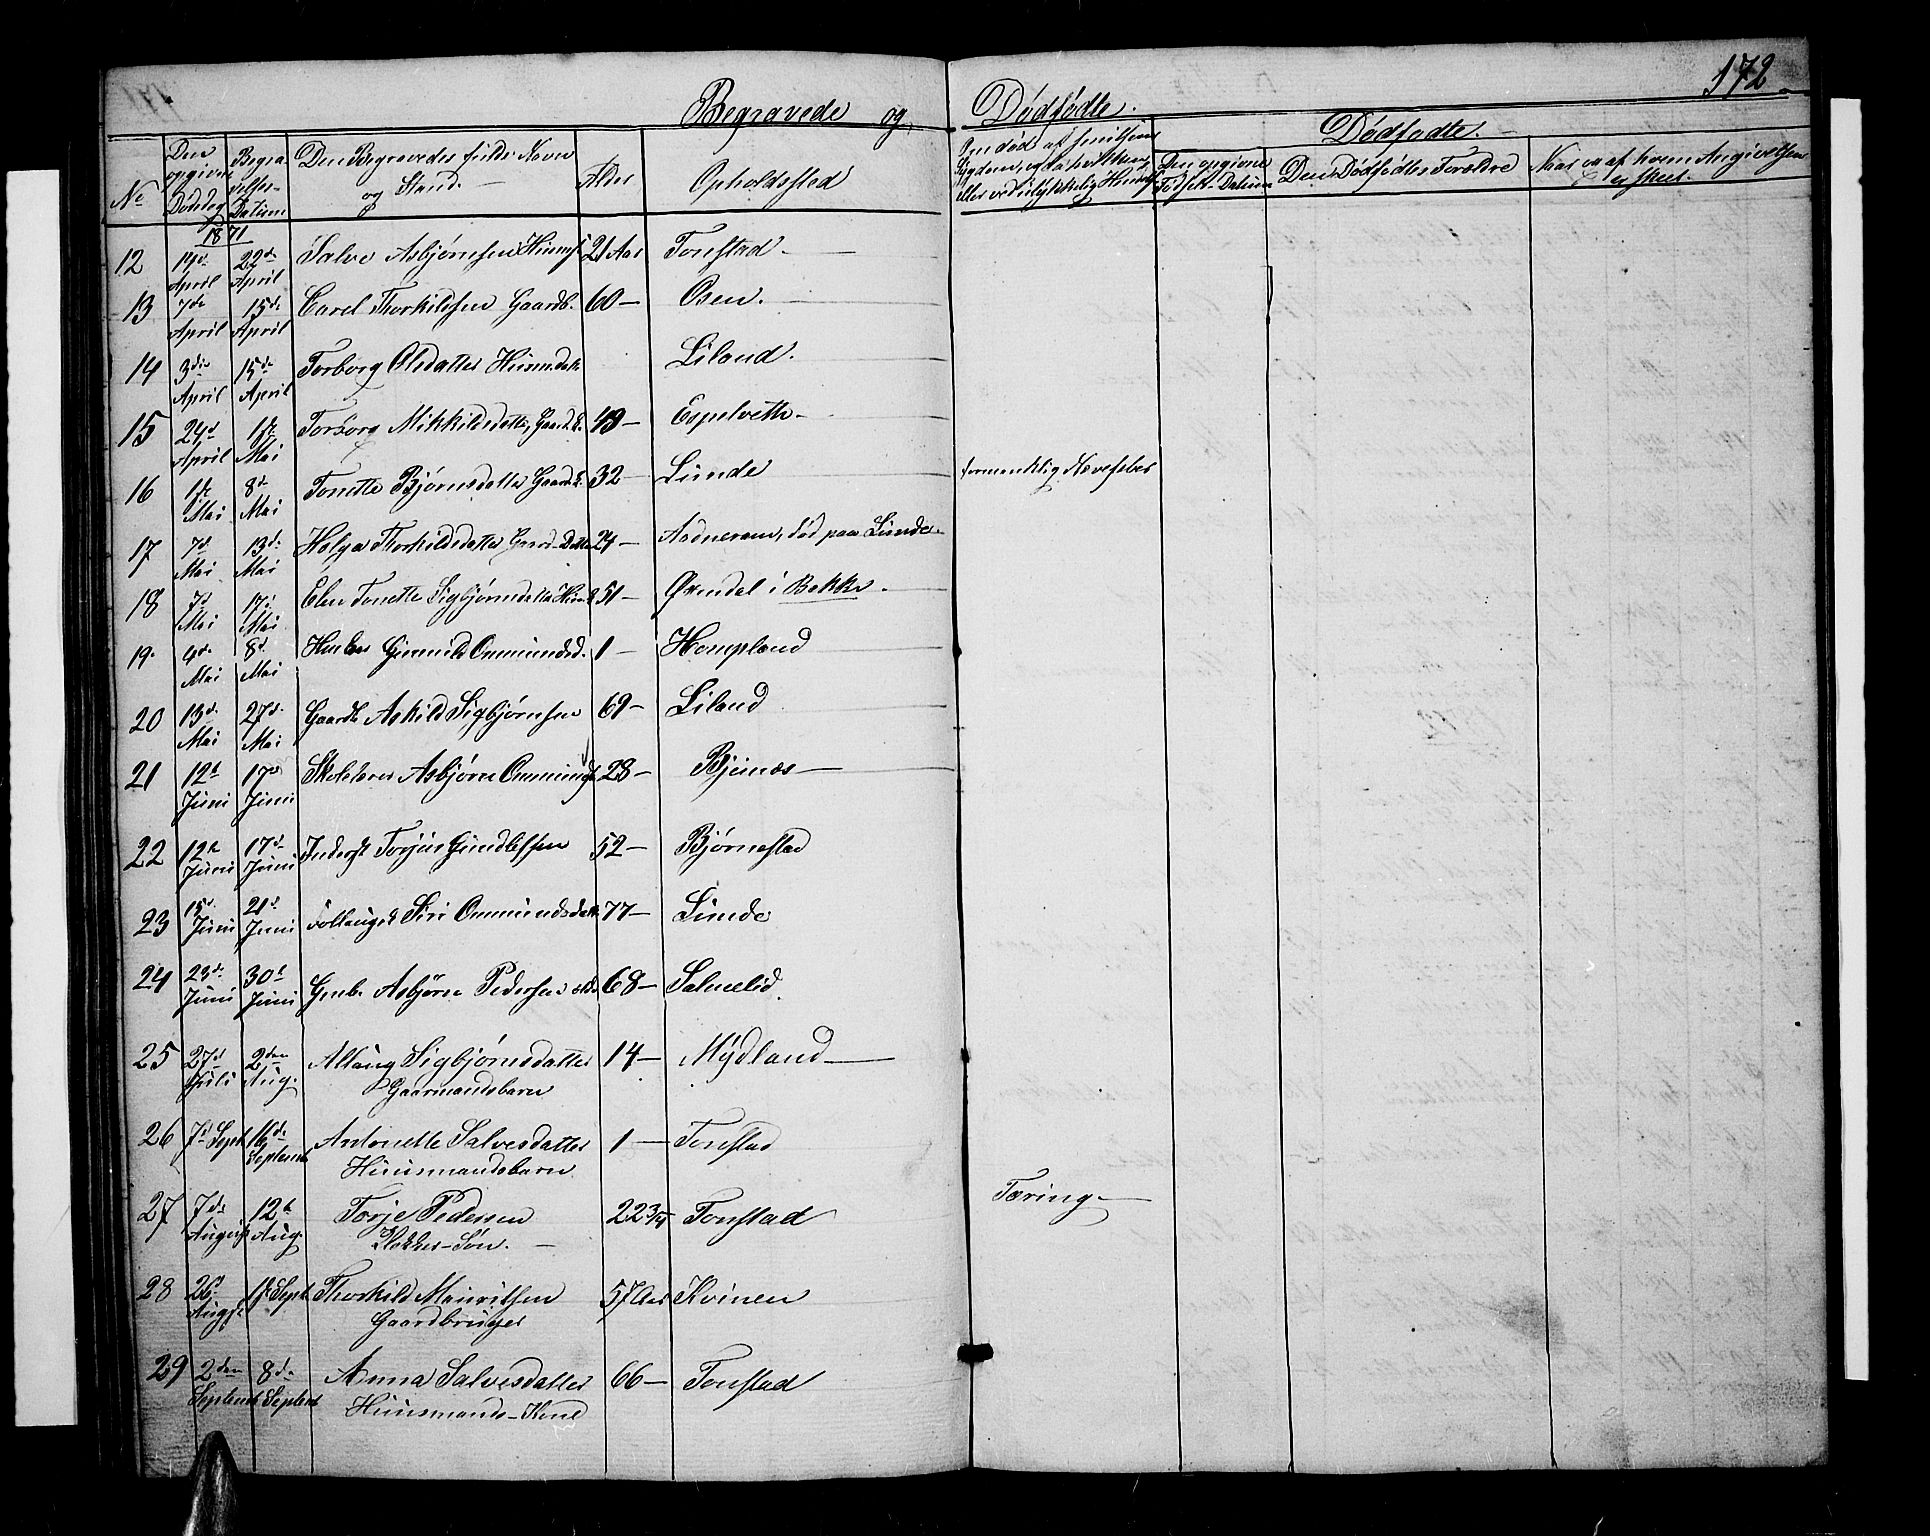 172
Begravede og Dødfødte.
No
Den opgivne Dødsdag
Begravelses-Datum
Den Begravedes fulde Navn og Stand.
Alder
Opholdssted
Om død af smitsom Sygdom,
eller ved ulykkelig Hændelse
Dødfødte.
Den opgivne Fødsels-Datum
Den Dødfødtes Forældre
Naar og af hvem Angivelsen er skeet.
1871
12 19d April 22de April Salve Asbjørnsen Huusm. 21 Aar Tonstad
13 7de April 15de April Carel Thorkildsen Gaardb. 60 Osen.
14 3die April 15de April Torborg Olsdatter Huusm.datt. Liland.
15 24d April 1ste Mai Torborg Mikkelsdatter, Gaard.K. 49 Espelveth
16 1ste Mai 8d Mai Tonette Bjørnsdatter Gaard.K. 32 Lunde formentlig Nervefeber
17 7d Mai 13de Mai Helga Thorkildsdatter Gaard-Datter 24 Aadneram, død paa Lunde
18 7d Mai 17d Mai Elen Tonette Sigbjørnsdatter Huusk. 51 Øxendal i Bakke.
19 4de Mai 8d Mai Gunnild Ommundsd. 1 Hompland
20 13d Mai 27d Mai Gaardb. Askild Sigbjørnsen 69 Liland
21 12t Juni 17d Juni Skolelærer Asbjørn Ommunds. 28 Bjunes
22 12te Juni 17d Juni Inderst Torjus Gundlefsen 52 Bjørnestad
23 15d Juni 21d Juni Føllaugsk. Siri Ommundsdatt. 77 Lunde
24 23de Juni 30t Juni Gmb. Asbjørn Pedersen 68 Salmelid
25 27d Juli 2den Aug. Atlaug Sigbjørnsdatter 14 Mydland
Gaarmandsbarn
26 7d Sept. 16de Septemb. Antonette Salvesdatter 1 Tonstad
Huusmandsbarn
27 7de August 12t Aug. Torje Pedersen 22 3/4 Tonstad Tæring
Klokker-Søn.
28 26d Augst. 1ste Sept. Thorkild Mauritsen 57 Aar Kvinen
Gaardbruger
29 2den Septemb. 8de Septemb. Anna Salvesdatter 66 Tonstad
Huusmands-Kone